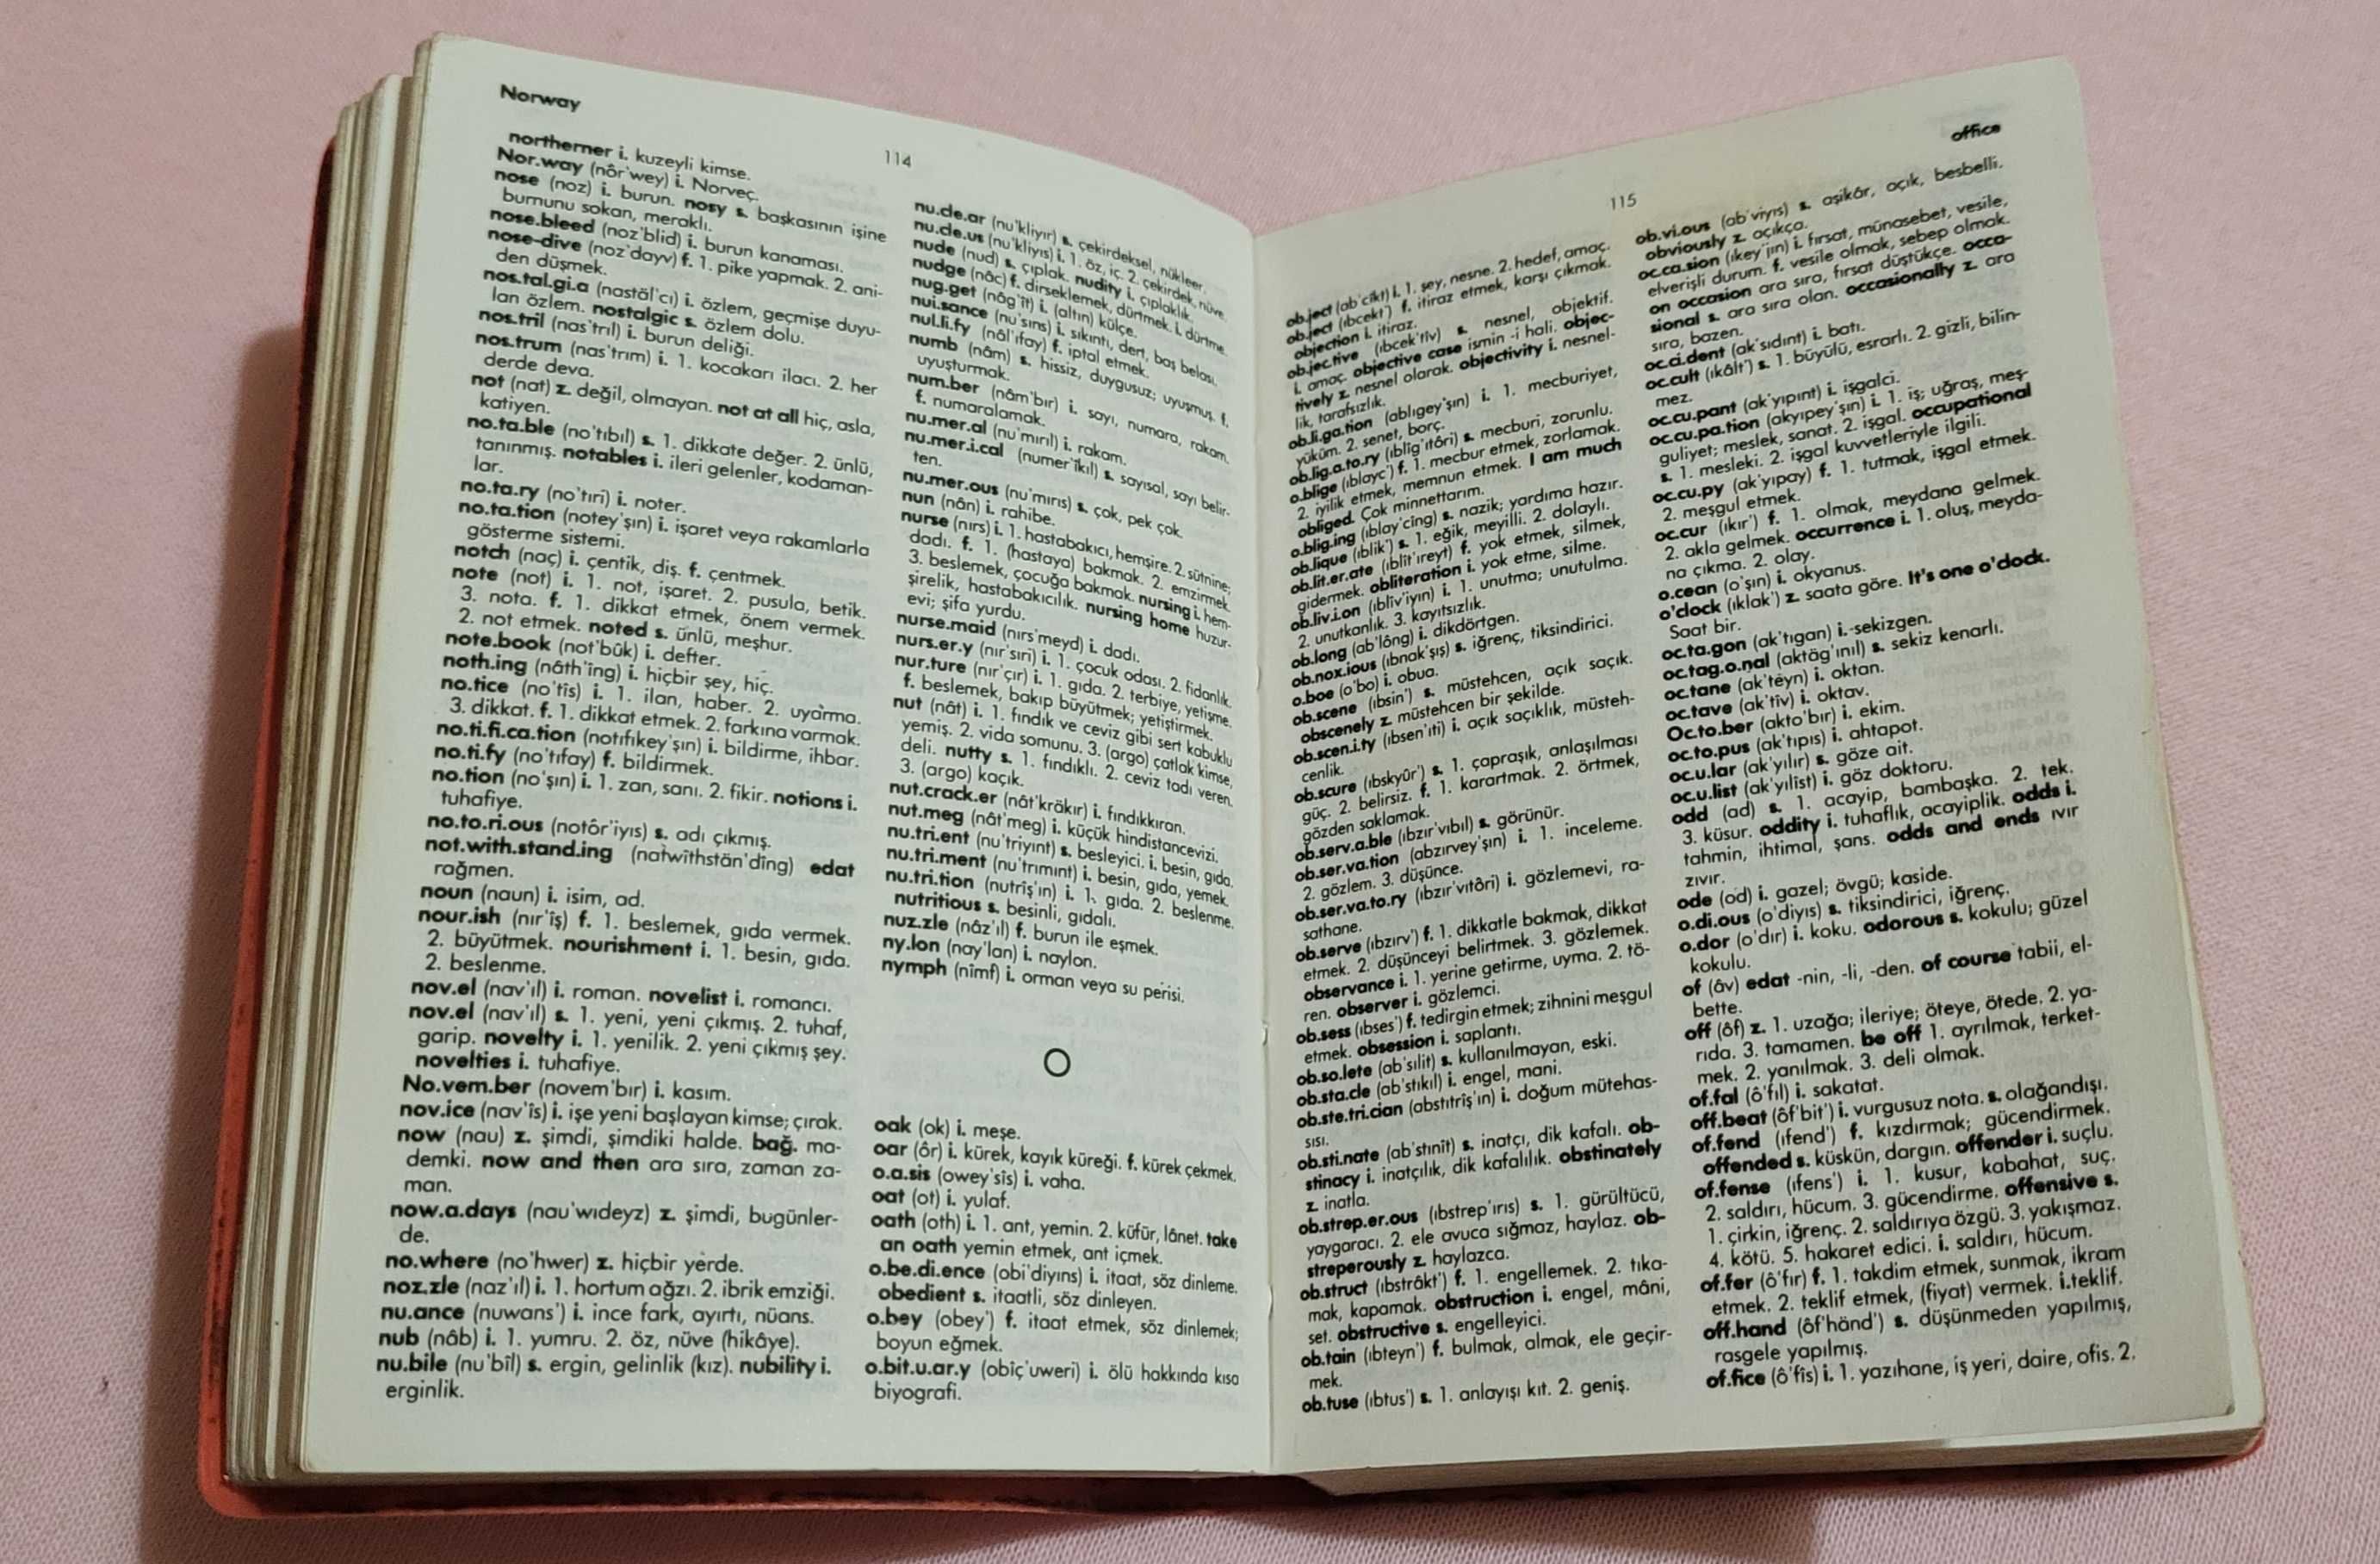 Norway
114
northerner i. kuzeyli kimse.
Nor.way (nôr'wey) i. Norveç.
nose (noz) i. burun. nosy s. başkasının işine
burnunu sokan, meraklı.
nose.bleed (noz'blid) i. burun kanaması.
nose-dive (noz'dayv) f. 1. pike yapmak. 2. ani-
den düşmek.
nos.tal.gi.a (nastäl'cı) i. özlem, geçmişe duyu-
lan özlem. nostalgic s. özlem dolu.
nos.tril (nas'trıl) i. burun deliği.
nos.trum (nas'trım) i. 1. kocakarı ilacı. 2. her
derde deva.
not (nat) z. değil, olmayan. not at all hiç, asla,
katiyen.
no.ta.ble (no'tıbıl) s. 1. dikkate değer. 2. ünlü,
tanınmış. notables i. ileri gelenler, kodaman-
lar.
no.ta.ry (no'tıri) i. noter.
no.ta.tion (notey'şın) i. işaret veya rakamlarla
gösterme sistemi.
notch (naç) i. çentik, diş. f. çentmek.
note (not) i. 1. not, işaret. 2. pusula, betik.
3. nota. f. 1. dikkat etmek, önem vermek.
2. not etmek. noted s. ünlü, meşhur.
note.book (not'bûk) i. defter.
noth.ing (nâth'îng) i. hiçbir şey, hiç.
no.tice (no'tîs) i. 1. ilan, haber. 2. uyarma.
3. dikkat. f. 1. dikkat etmek. 2. farkına varmak.
no.ti.fi.ca.tion (notıfıkey'şın) i. bildirme, ihbar.
no.ti.fy (no'tıfay) f. bildirmek.
no.tion (no'şın) i. 1. zan, sanı. 2. fikir. notions i.
tuhafiye.
no.to.ri.ous (notôr'iyıs) s. adı çıkmış.
not.with.stand.ing (natwîthstän'dîng) edat
rağmen.
noun (naun) i. isim, ad.
nour.ish (nır'îş) f. 1. beslemek, gıda vermek.
2. büyütmek. nourishment i. 1. besin, gıda.
2. beslenme.
nov.el (nav'ıl) i. roman. novelist i. romancı.
nov.el (nav'ıl) s. 1. yeni, yeni çıkmış. 2. tuhaf,
garip. novelty i. 1. yenilik. 2. yeni çıkmış şey.
novelties i. tuhafiye.
No.vem.ber (novem'bır) i. kasım.
nov.ice (nav'îs) i. işe yeni başlayan kimse; çırak.
now (nau) z. şimdi, şimdiki halde. bağ. ma-
demki. now and then ara sıra, zaman za-
man.
now.a.days (nau'wıdeyz) z. şimdi, bugünler-
de.
no.where (no'hwer) z. hiçbir yerde.
noz.zle (naz'ıl) i. 1. hortum ağzı. 2. ibrik emziği.
nu.ance (nuwans') i. ince fark, ayırtı, nüans.
nub (nâb) i. 1. yumru. 2. öz, nüve (hikâye).
nu.bile (nu'bîl) s. ergin, gelinlik (kız). nubility i.
erginlik.
nu.cle.ar (nu'kliyır) s. çekirdeksel, nükleer.
nu.cle.us (nu'kliyıs) i. 1. öz, iç. 2. çekirdek, nüve.
nude (nud) s. çıplak. nudity i. çıplaklık.
nudge (nâc) f. dirseklemek, dürtmek. i. dürtme.
nug.get (nâg'ît) i. (altın) külçe.
nui.sance (nu'sıns) i. sıkıntı, dert, baş belası.
nul.li.fy (nâl'ıfay) f. iptal etmek.
numb (nâm) s. hissiz, duygusuz; uyuşmuş. f.
uyuşturmak.
num.ber (nâm'bır) i. sayı, numara, rakam.
f. numaralamak.
nu.mer.al (nu'mırıl) i. rakam.
nu.mer.i.cal (numer'îkıl) s. sayısal, sayı belir-
ten.
nu.mer.ous (nu'mırıs) s. çok, pek çok.
nun (nân) i. rahibe.
nurse (nırs) i. 1. hastabakıcı, hemşire. 2. sütnine;
dadı. f. 1. (hastaya) bakmak. 2. emzirmek.
3. beslemek, çocuğa bakmak. nursing i. hem-
şirelik, hastabakıcılık. nursing home huzur-
evi; şifa yurdu.
nurse.maid (nırs'meyd) i. dadı.
nurs.er.y (nır'sıri) i. 1. çocuk odası. 2. fidanlık.
nur.ture (nır'çır) i. 1. gıda. 2. terbiye, yetişme.
f. beslemek, bakıp büyütmek; yetiştirmek.
nut (nât) i. 1. fındık ve ceviz gibi sert kabuklu
yemiş. 2. vida somunu. 3. (argo) çatlak kimse,
deli. nutty s. 1. fındıklı. 2. ceviz tadı veren.
3. (argo) kaçık.
nut.crack.er (nât'kräkır) i. fındıkkıran.
nut.meg (nât'meg) i. küçük hindistancevizi.
nu.tri.ent (nu'triyınt) s. besleyici. i. besin, gıda.
nu.tri.ment (nu'trımınt) i. besin, gıda, yemek.
nu.tri.tion (nutrîş'ın) i. 1. gıda. 2. beslenme.
nutritious s. besinli, gıdalı.
nuz.zle (nâz'ıl) f. burun ile eşmek.
ny.lon (nay'lan) i. naylon.
nymph (nîmf) i. orman veya su perisi.
O
oak (ok) i. meşe.
oar (ôr) i. kürek, kayık küreği. f. kürek çekmek.
o.a.sis (owey'sîs) i. vaha.
oat (ot) i. yulaf.
oath (oth) i. 1. ant, yemin. 2. küfür, lânet. take
an oath yemin etmek, ant içmek.
o.be.di.ence (obi'diyıns) i. itaat, söz dinleme.
obedient s. itaatli, söz dinleyen.
o.bey (obey') f. itaat etmek, söz dinlemek;
boyun eğmek.
o.bit.u.ar.y (obîç'uweri) i. ölü hakkında kısa
biyografi.
115
office
ob.ject (ab'cîkt) i. 1. şey, nesne. 2. hedef, amaç.
ob.ject (ıbcekt') f. itiraz etmek, karşı çıkmak.
objection i. itiraz.
ob.jec.tive (ıbcek'tîv) s. nesnel, objektif.
i. amaç. objective case ismin -i hali. objec-
tively z. nesnel olarak. objectivity i. nesnel-
lik, tarafsızlık.
ob.li.ga.tion (ablıgey'şın) i. 1. mecburiyet,
yüküm. 2. senet, borç.
ob.lig.a.to.ry (ıblîg'ıtôri) s. mecburi, zorunlu.
o.blige (ıblayc') f. 1. mecbur etmek, zorlamak.
2. iyilik etmek, memnun etmek. I am much
obliged. Çok minnettarım.
o.blig.ing (ıblay'cîng) s. nazik; yardıma hazır.
ob.lique (ıblik') s. 1. eğik, meyilli. 2. dolaylı.
ob.lit.er.ate (ıblît'ıreyt) f. yok etmek, silmek,
gidermek. obliteration i. yok etme, silme.
ob.liv.i.on (ıblîv'iyın) i. 1. unutma; unutulma.
2. unutkanlık. 3. kayıtsızlık.
ob.long (ab'lông) i. dikdörtgen.
ob.nox.ious (ıbnak'şıs) s. iğrenç, tiksindirici.
o.boe (o'bo) i. obua.
ob.scene (ıbsin') s. müstehcen, açık saçık.
obscenely z. müstehcen bir şekilde.
ob.scen.i.ty (ıbsen'ıti) i. açık saçıklık, müsteh-
cenlik.
ob.scure (ıbskyûr') s. 1. çapraşık, anlaşılması
güç. 2. belirsiz. f. 1. karartmak. 2. örtmek,
gözden saklamak.
ob.serv.a.ble (ıbzır'vıbıl) s. görünür.
ob.ser.va.tion (abzırvey'şın) i. 1. inceleme.
2. gözlem. 3. düşünce.
ob.ser.va.to.ry (ıbzır'vıtôri) i. gözlemevi, ra-
sathane.
ob.serve (ıbzırv') f. 1. dikkatle bakmak, dikkat
etmek. 2. düşünceyi belirtmek. 3. gözlemek.
observance i. 1. yerine getirme, uyma. 2. tö-
ren. observer i. gözlemci.
ob.sess (ıbses') f. tedirgin etmek; zihnini meşgul
etmek. obsession i. saplantı.
ob.so.lete (ab'sılit) s. kullanılmayan, eski.
ob.sta.cle (ab'stıkıl) i. engel, mani.
ob.ste.tri.cian (abstıtrîş'ın) i. doğum mütehas-
sısı.
ob.sti.nate (ab'stınît) s. inatçı, dik kafalı. ob-
stinacy i. inatçılık, dik kafalılık. obstinately
z. inatla.
ob.strep.er.ous (ıbstrep'ırıs) s. 1. gürültücü,
yaygaracı. 2. ele avuca sığmaz, haylaz. ob-
streperously z. haylazca.
ob.struct (ıbstrâkt') f. 1. engellemek. 2. tıka-
mak, kapamak. obstruction i. engel, mâni,
set. obstructive s. engelleyici.
ob.tain (ıbteyn') f. bulmak, almak, ele geçir-
mek.
ob.tuse (ıbtus') s. 1. anlayışı kıt. 2. geniş.
ob.vi.ous (ab'viyıs) s. aşikâr, açık, besbelli.
obviously z. açıkça.
oc.ca.sion (ıkey'jın) i. fırsat, münasebet, vesile,
elverişli durum. f. vesile olmak, sebep olmak.
on occasion ara sıra, fırsat düştükçe. occa-
sional s. ara sıra olan. occasionally z. ara
sıra, bazen.
oc.ci.dent (ak'sıdınt) i. batı.
oc.cult (ıkâlt') s. 1. büyülü, esrarlı. 2. gizli, bilin-
mez.
oc.cu.pant (ak'yıpınt) i. işgalci.
oc.cu.pa.tion (akyıpey'şın) i. 1. iş; uğraş, meş-
guliyet; meslek, sanat. 2. işgal. occupational
s. 1. mesleki. 2. işgal kuvvetleriyle ilgili.
oc.cu.py (ak'yıpay) f. 1. tutmak, işgal etmek.
2. meşgul etmek.
oc.cur (ıkır') f. 1. olmak, meydana gelmek.
2. akla gelmek. occurrence i. 1. oluş, meyda-
na çıkma. 2. olay.
o.cean (o'şın) i. okyanus.
o'clock (ıklak') z. saata göre. It's one o'clock.
Saat bir.
oc.ta.gon (ak'tıgan) i. sekizgen.
oc.tag.o.nal (aktäg'ınıl) s. sekiz kenarlı.
oc.tane (ak'teyn) i. oktan.
oc.tave (ak'tîv) i. oktav.
Oc.to.ber (akto'bır) i. ekim.
oc.to.pus (ak'tıpıs) i. ahtapot.
oc.u.lar (ak'yılır) s. göze ait.
oc.u.list (ak'yılîst) i. göz doktoru.
odd (ad) s. 1. acayip, bambaşka. 2. tek.
3. küsur. oddity i. tuhaflık, acayiplik. odds i.
tahmin, ihtimal, şans. odds and ends ıvır
zıvır.
ode (od) i. gazel; övgü; kaside.
o.di.ous (o'diyıs) s. tiksindirici, iğrenç.
o.dor (o'dır) i. koku. odorous s. kokulu; güzel
kokulu.
of (âv) edat -nin, -li, -den. of course tabii, el-
bette.
off (ôf) z. 1. uzağa; ileriye; öteye, ötede. 2. ya-
rıda. 3. tamamen. be off 1. ayrılmak, terket-
mek. 2. yanılmak. 3. deli olmak.
of.fal (ô'fıl) i. sakatat.
off.beat (ôf'bit') i. vurgusuz nota. s. olağandışı.
of.fend (ıfend') f. kızdırmak; gücendirmek.
offended s. küskün, dargın. offender i. suçlu.
of.fense (ıfens') i. 1. kusur, kabahat, suç.
2. saldırı, hücum. 3. gücendirme. offensive s.
1. çirkin, iğrenç. 2. saldırıya özgü. 3. yakışmaz.
4. kötü. 5. hakaret edici. i. saldırı, hücum.
of.fer (ô'fır) f. 1. takdim etmek, sunmak, ikram
etmek. 2. teklif etmek, (fiyat) vermek. i.teklif.
off.hand (ôf'händ') s. düşünmeden yapılmış,
rasgele yapılmış.
of.fice (ô'fîs) i. 1. yazıhane, iş yeri, daire, ofis. 2.